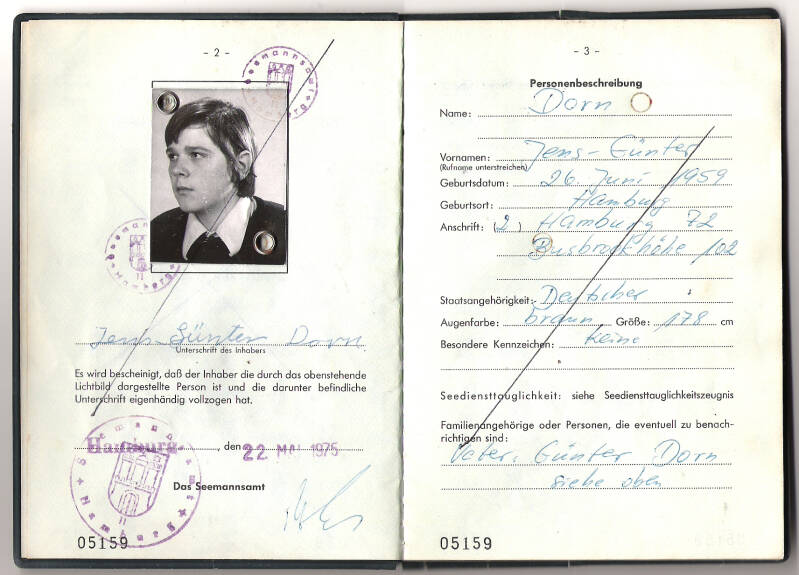 - 2 -
Seemannsamt
Hamburg
Seemannsamt
Hamburg
Jens-Günter Dorn.
Unterschrift des Inhabers
Es wird bescheinigt, daß der Inhaber die durch das obenstehende
Lichtbild dargestellte Person ist und die darunter befindliche
Unterschrift eigenhändig vollzogen hat.
Hamburg, den 22 MAI 1975
Seemannsamt Hamburg
Das Seemannsamt
05159
- 3 -
Personenbeschreibung
Name: Dorn
Vornamen: Jens-Günter
(Rufname unterstreichen)
Geburtsdatum: 26. Juni 1959
Geburtsort: Hamburg
Anschrift: (2) Hamburg 72
Busbrookhöhe 102
Staatsangehörigkeit: Deutscher
Augenfarbe: braun Größe: 178 cm
Besondere Kennzeichen: keine
Seediensttauglichkeit: siehe Seediensttauglichkeitszeugnis
Familienangehörige oder Personen, die eventuell zu benach-
richtigen sind:
Vater: Günter Dorn
siehe oben
05159